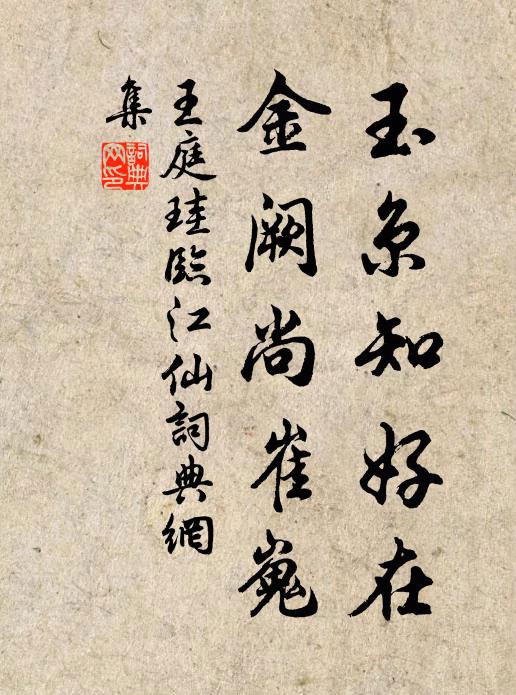 玉京知好在
金阙尚崔嵬
王庭珪臨江仙詞典網
集
詞典
网印